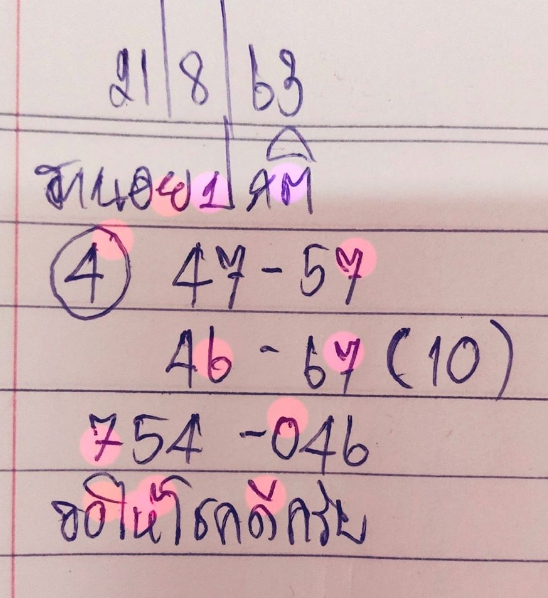 21/8/63
ฮานอยปกติ
4 47-57
46-67 (10)
754-046
ขอให้โชคดีครับ